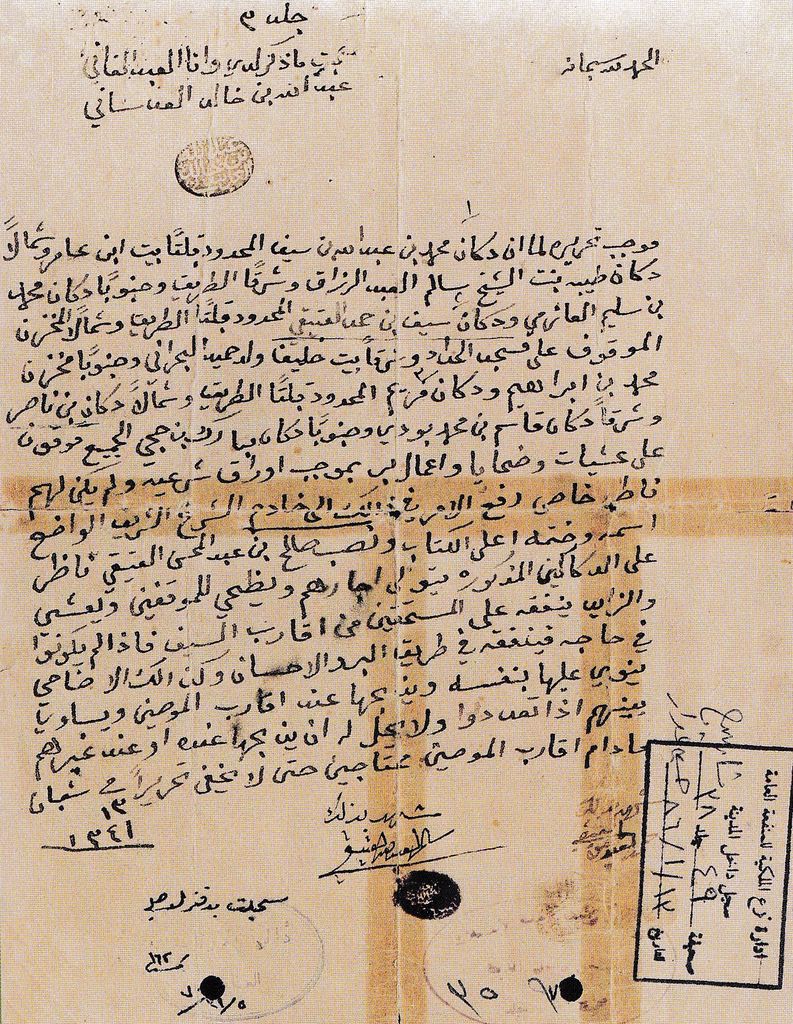 جلد ٣
الحمد لله سبحانه
ثبت ما ذكر لدي وانا العبد الفاني
عبد الله بن خالد العدساني
١
موجب تحريره لما ان دكان محمد بن عبد الله بن سيف المحدود قبلتًا بيت ابن عامر وشمالًا
دكان طيبه بنت الشيخ سالم العبد الرزاق وشرقًا الطريق وجنوبًا دكان محمد
بن سليم العازمي ودكان سيف بن حمد العتيقي المحدود قبلتًا الطريق وشمالًا المخزن
الموقوف على مسجد الحداد وشرقًا بيت خليفا ولد حميد البحراني وجنوبًا مخزن
محمد بن ابراهيم ودكان مريم المحدود قبلتًا الطريق وشمالًا دكان بن ناصر
وشرقاً دكان قاسم بن محمد بودي وجنوبًا دكان مبارك بن حجي الجميع موقوف
على عشيات وضحايا واعمال بر بموجب اوراق شرعيه ولم يكن لهم
ناظر خاص رفع الامر في ذلك الى خادم الشرع الشريف الواضح
اسمه وختمه اعلى الكتاب ونصب صالح بن عبد المحسن العتيقي ناظر
على الدكاكين المذكوره يتولى اجارهم ويظحي للموقفين ويعشي
والزايد ينفقه على المستحقين من اقارب السيف فاذا لم يكونوا
في حاجه فينفقه في طريق البر والاحسان وكذالك الاضاحي
ينوي عليها بنفسه ويذبحها عند اقارب الموصين ويساويا
بينهم اذا تعددوا ولا يحل له ان يذبحها عنده او عند غيرهم
مادام اقارب الموصين محتاجين حتى لا يخفى تحريرًا في شعبان
١٣
١٣٤١
شهد بذلك
سجلت بدفتر
١٦٢
٧
٣ ٥
ادارة نزع الملكية للمنفعة العامة
سجل داخل المدينة
صحيفة ٤٩ جلد ٢٨
التاريخ